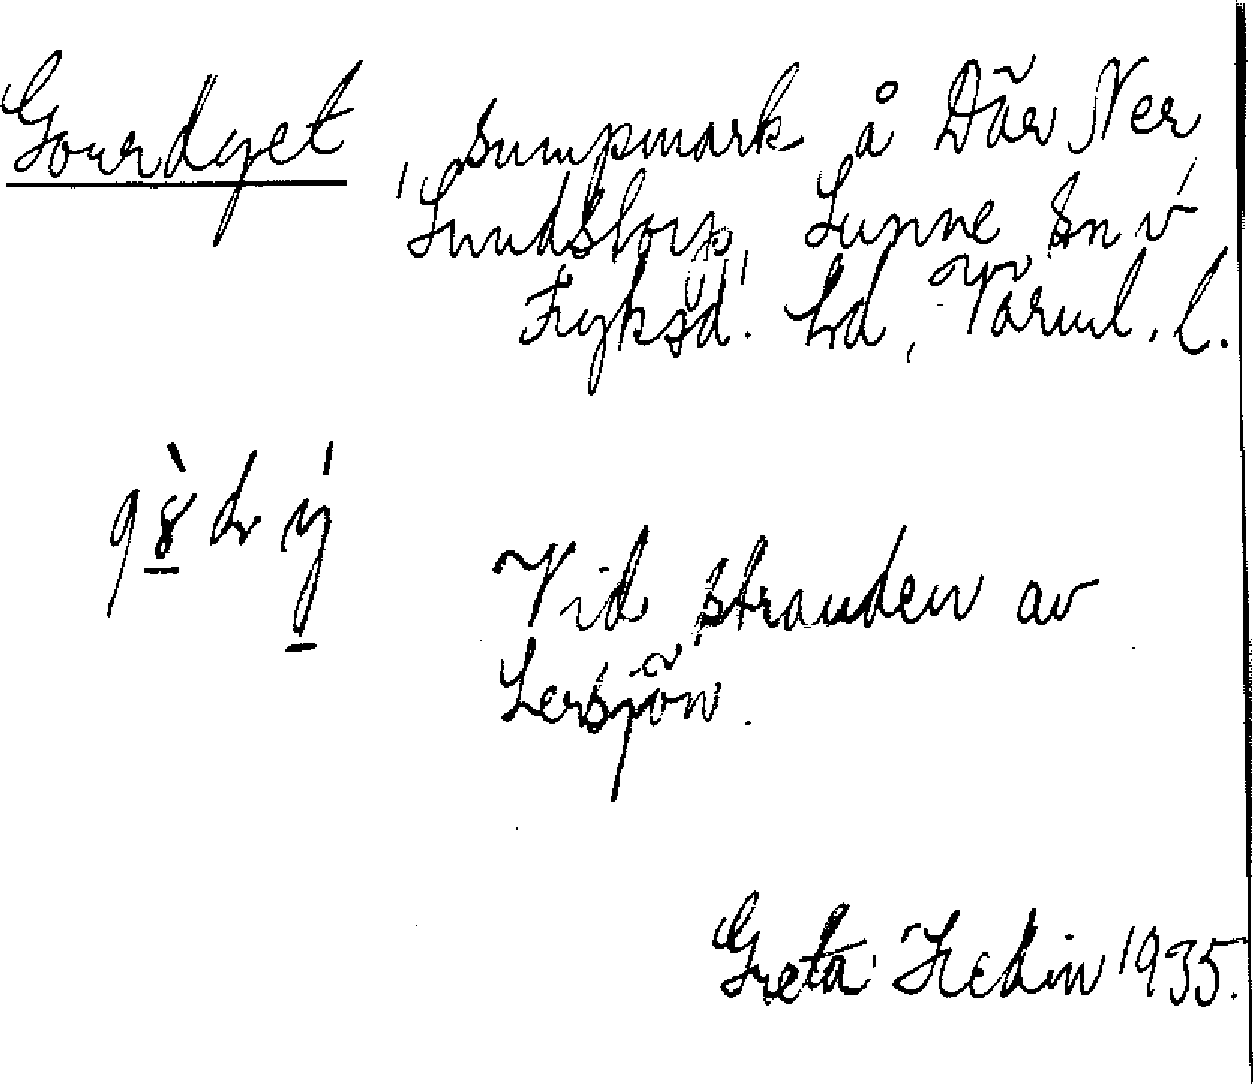 Gourdyet, sumpmark å Där Ner
Sundstorp, Sunne sn i
Fryksd. hd, Värml. l.
Vid stranden av
Lersjön.
Greta Hedin 1935.